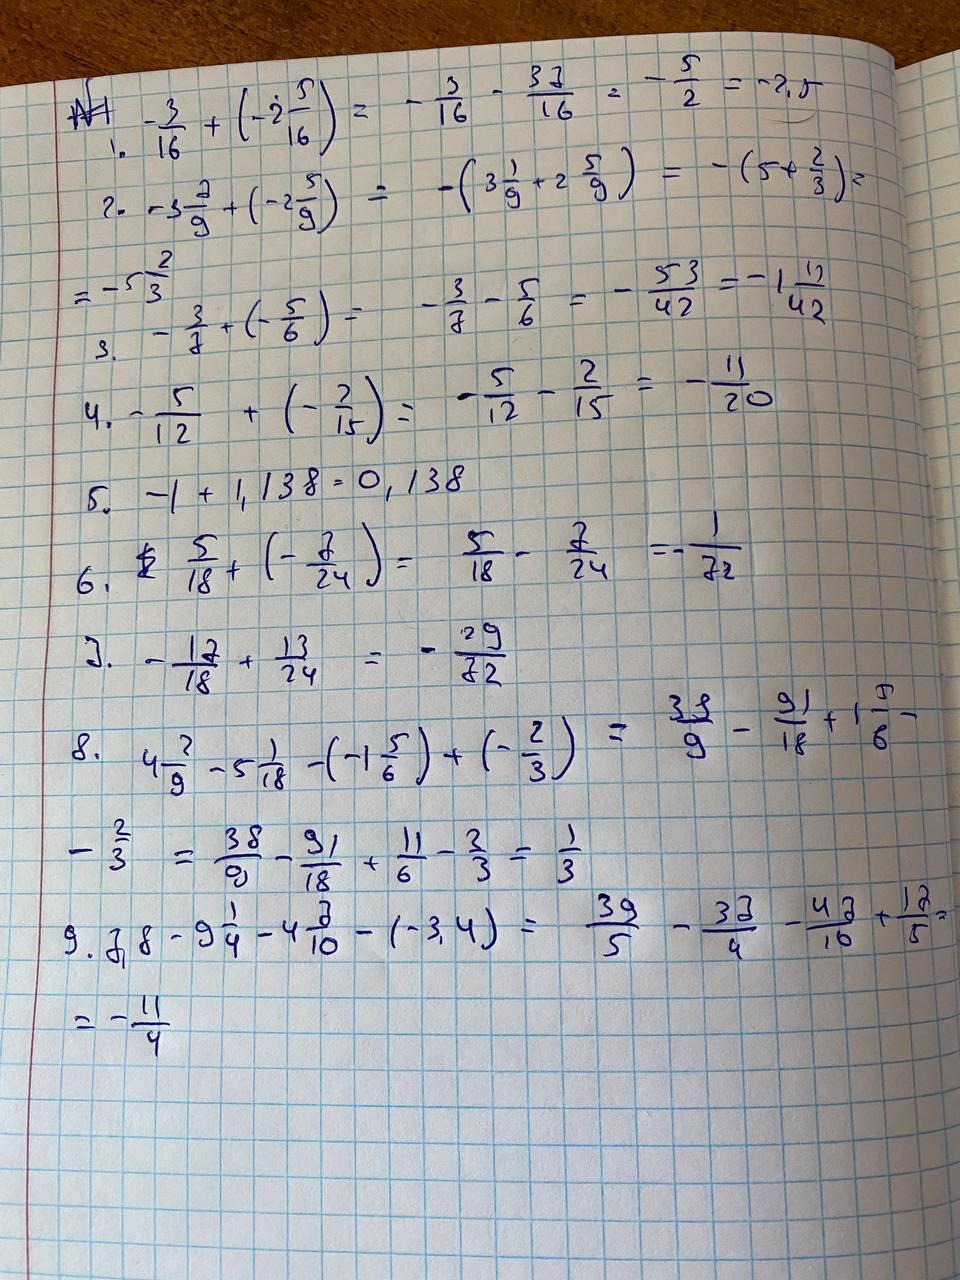 1. -3/16 + (-2 5/16) = -3/16 - 37/16 = -5/2 = -2,5
2. -3 1/9 + (-2 5/9) = -(3 1/9 + 2 5/9) = -(5 + 2/3) =
= -5 2/3
3. -3/7 + (-5/6) = -3/7 - 5/6 = -53/42 = -1 11/42
4. -5/12 + (-2/15) = -5/12 - 2/15 = -11/20
5. -1 + 1,138 = 0,138
6. 5/18 + (-7/24) = 5/18 - 7/24 = -1/72
7. -17/18 + 13/24 = -29/72
8. 4 2/9 - 5 1/18 - (-1 5/6) + (-2/3) = 38/9 - 91/18 + 1 5/6 -
- 2/3 = 38/9 - 91/18 + 11/6 - 2/3 = 1/3
9. 7,8 - 9 1/4 - 4 7/10 - (-3,4) = 39/5 - 37/4 - 47/10 + 17/5 =
= -11/4